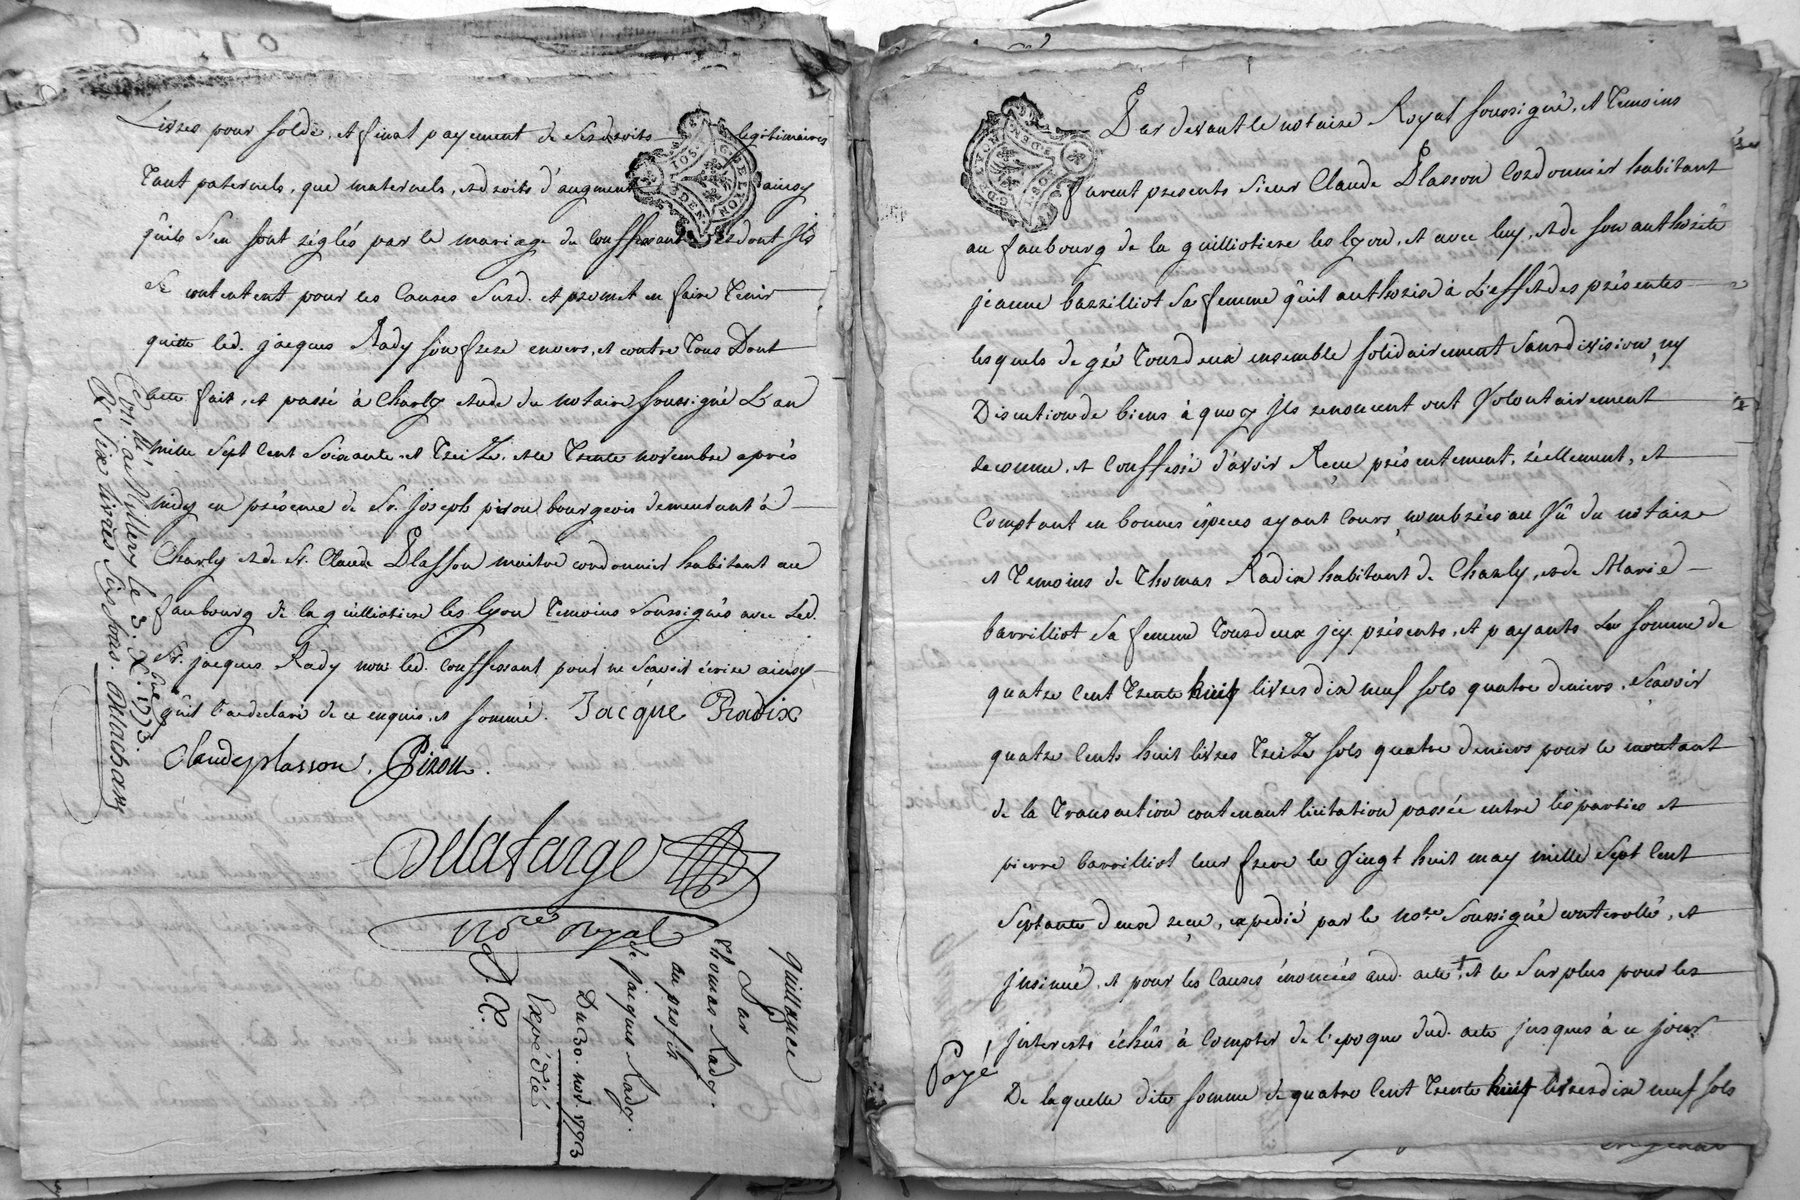 Livres pour solde, et final payement de ses droits legitimaires
tant paternels, que maternels, et droits d'augment ainsy
qu'ils s'en sont réglés par le mariage du Conffessant et dont Ils
se contentent pour les Causes Susd. et promet en faire tenir
quitte led. jacques Rady son frere envers, et contre tous Dont
acte fait, et passé à Charly étude du notaire soussigné L'an
mille sept cent soixante et treize, et le trente novembre après
midy en présence de Sr. joseph pirou bourgeois demeurant à
Charly et de Sr. Claude Plasson maitre cordonnier habitant au
faubourg de la guilliotiere les lyon temoins soussignés avec led.
Sr. jacques Rady non led. Conffessant pour ne scavoir écrire ainsy
qu'il l'a declaré de ce enquis, et sommé. Jacque Radix
Claude plasson. Pirou.
Delafarge
Nore royal
Con. lé à Millery le 3. Xbre 1773.
R. six livres six sous.
quittance
Par
thomas Rady.
au proffit
de jacques Rady.
Du 30. nov. 1773
Expédiée
G. DE LYON
Par devant le notaire Royal soussigné, et temoins
furent presents sieur Claude Plasson cordonnier habitant
au faubourg de la guilliotiere les lyon, et avec luy, et de son authorité
jeanne barrilliot sa femme qu'il authorise à L'effet des présentes
lesquels de gré tous deux ensemble solidairement sans division, ny
Discution de biens à quoy Ils renoncent ont Volontairement
reconnu, et Conffessé d'avoir Reçu présentement, réellement, et
Comptant en bonnes éspeces ayant Cours, nombrées au Vû du notaire
et temoins de thomas Radix habitant de Charly, et de Marie
barrilliot sa femme tous deux icy présents, et payants La somme de
quatre Cent trente huit livres dix neuf sols quatre deniers, Scavoir
quatre Cents huit livres treize sols quatre deniers pour le montant
de la transaction contenant licitation passée entre les parties et
pierre barrilliot leur frere le Vingt huit may mille sept Cent
septante deux reçue, expedié par le nore soussigné controllé, et
insinué, et pour les Causes énoncées aud. acte, et le Surplus pour les
interests échûs à compter de l'epoque dud. acte jusques à ce jour
Payé
De laquelle dite somme de quatre Cent trente huit livres dix neuf sols